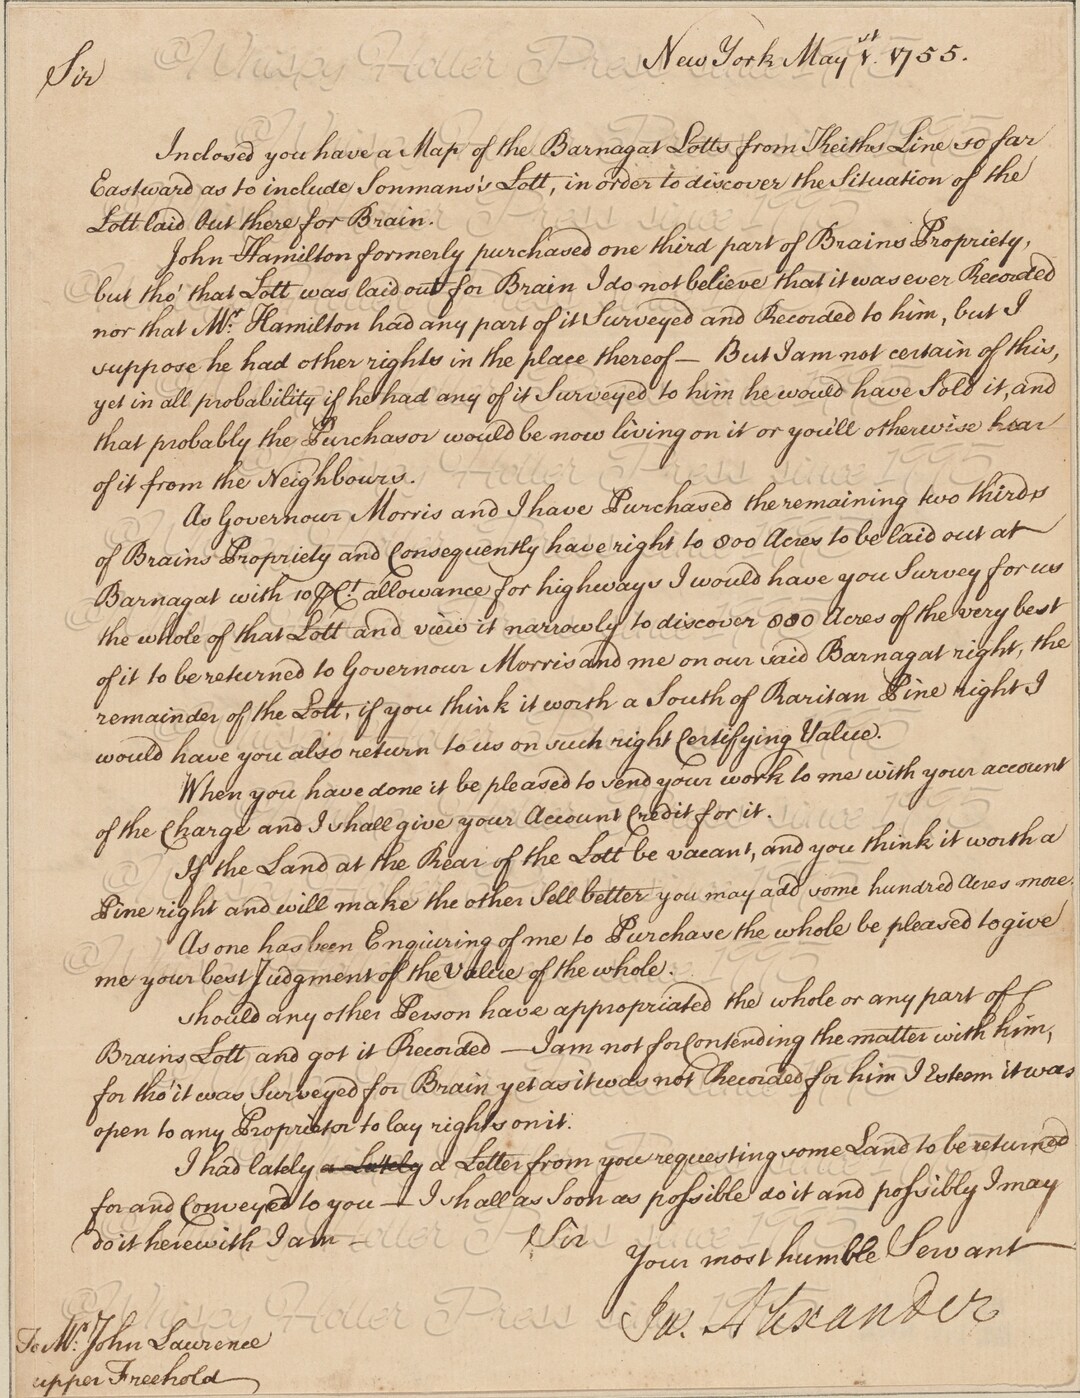 Sir
New York May 1st. 1755.
Inclosed you have a Map of the Barnagat Lotts from Kieths Line so far
Eastward as to include Sonmans's Lott, in order to discover the Situation of the
Lott laid Out there for Brain.
John Hamilton formerly purchased one third part of Brains Propriety,
but tho' that Lott was laid out for Brain I do not believe that it was ever Recorded
nor that Mr. Hamilton had any part of it Surveyed and Recorded to him, but I
suppose he had other rights in the place thereof — But I am not certain of this,
yet in all probability if he had any of it Surveyed to him he would have Sold it, and
that probably the Purchasor would be now living on it or you'll otherwise hear
of it from the Neighbours.
As Governour Morris and I have Purchased the remaining two thirds
of Brains Propriety and Consequently have right to 800 Acres to be laid out at
Barnagat with 10 P Ct. allowance for highways I would have you Survey for us
the whole of that Lott and view it narrowly to discover 880 Acres of the very best
of it to be returned to Governour Morris and me on our said Barnagat right, the
remainder of the Lott, if you think it worth a South of Raritan Pine right I
would have you also return to us on such right Certifying Value.
When you have done it be pleased to send your work to me with your account
of the Charge and I shall give your Account Credit for it.
If the Land at the Rear of the Lott be vacant, and you think it worth a
Pine right and will make the other Sell better you may add some hundred Acres more.
As one has been Enquiring of me to Purchase the whole be pleased to give
me your best Judgment of the Value of the whole.
Should any other Person have appropriated the whole or any part of
Brains Lott and got it Recorded — I am not for Contending the matter with him,
for tho' it was Surveyed for Brain yet as it was not Recorded for him I Esteem it was
open to any Proprietor to lay rights on it.
I had lately a Lately a Letter from you requesting some Land to be returned
for and Conveyed to you — I shall as Soon as possible do it and possibly I may
do it herewith I am — Sir
Your most humble Servant
Ja. Alexander
To Mr. John Lawrence
upper Freehold
@Whispy Holler Press since 1995